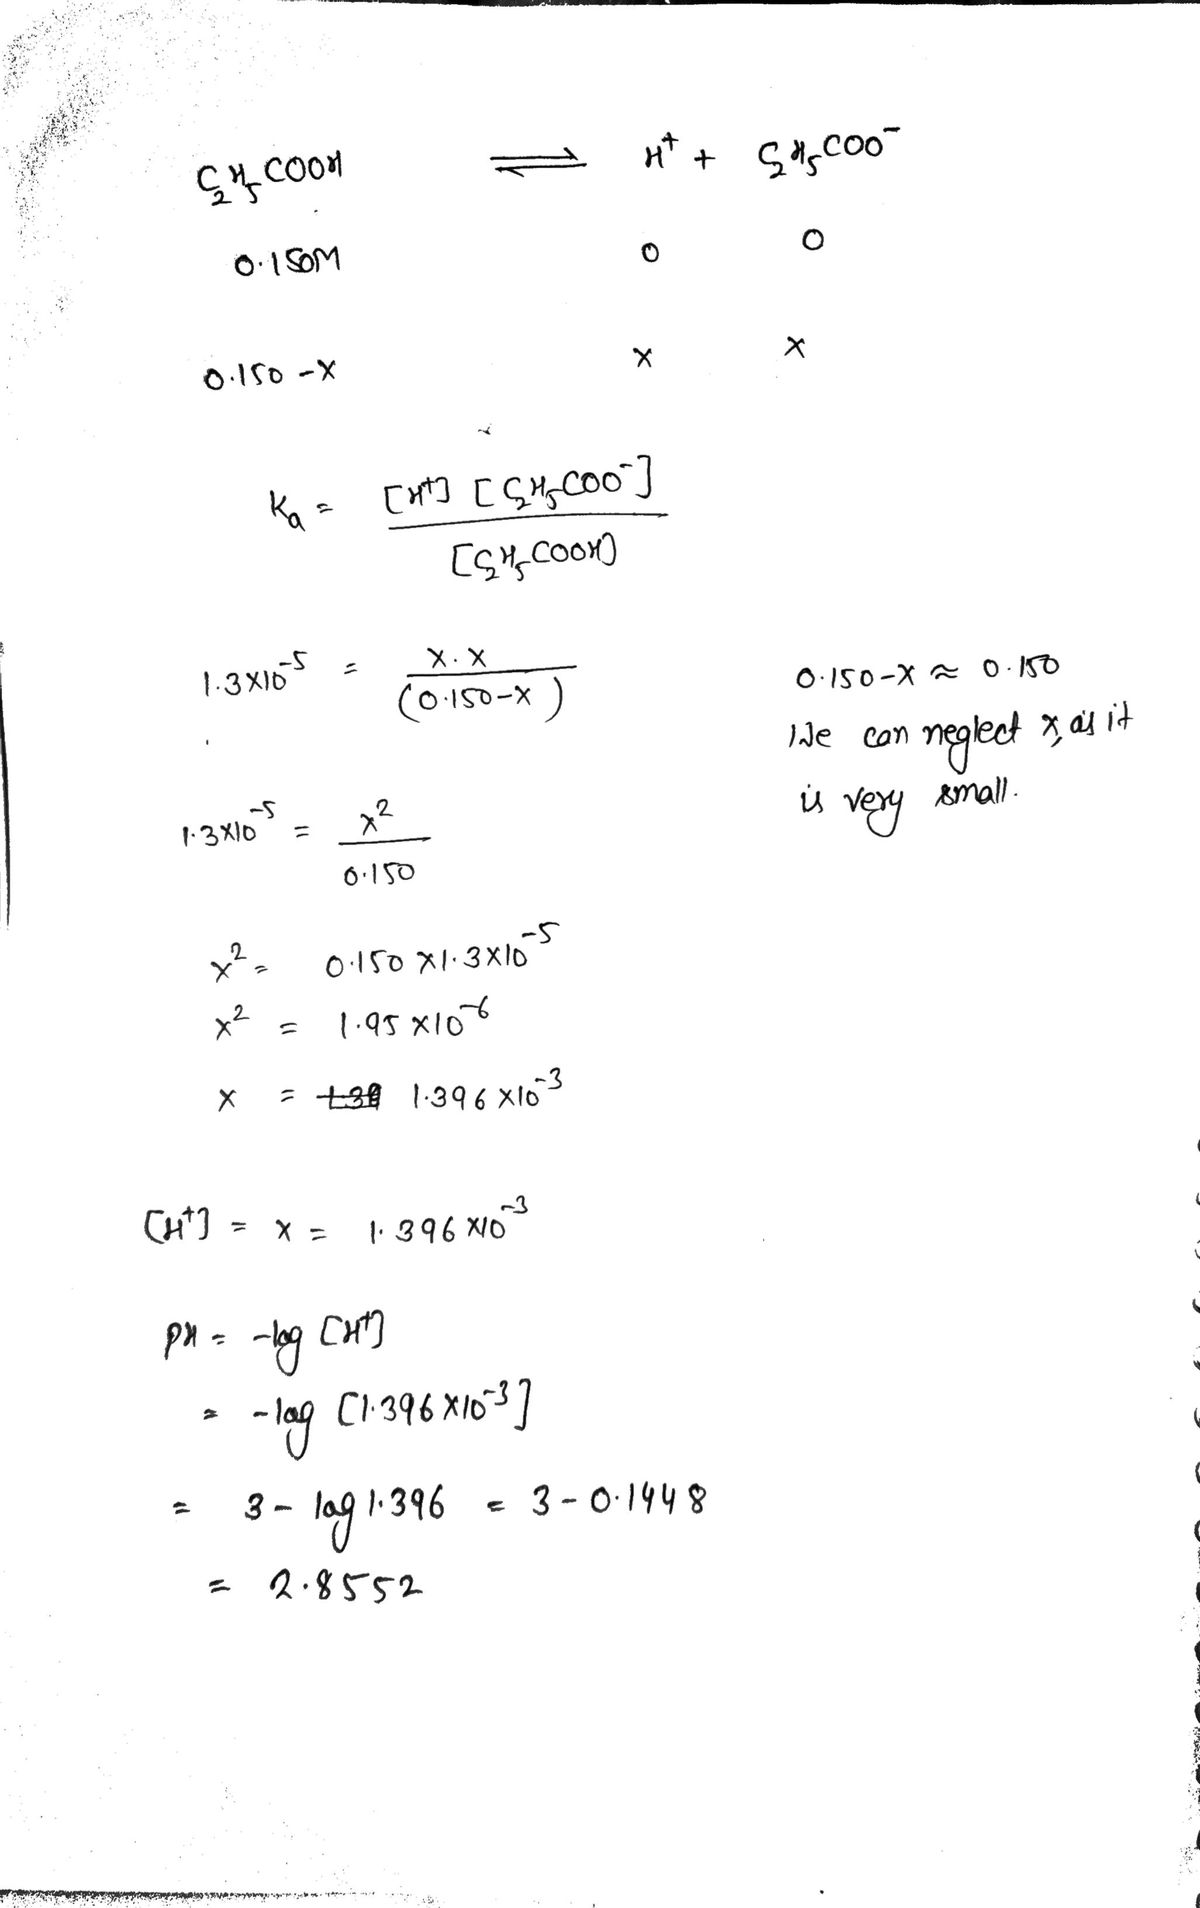 C₂H₅COOH ⇌ H⁺ + C₂H₅COO⁻
0.150M 0 0
0.150 -x x x
Ka = [H⁺] [C₂H₅COO⁻] / [C₂H₅COOH]
1.3x10⁻⁵ = x.x / (0.150-x)
0.150-x ≈ 0.150
We can neglect x, as it
is very small.
1.3x10⁻⁵ = x² / 0.150
x² = 0.150 x1.3x10⁻⁵
x² = 1.95 x10⁻⁶
x = 1.396 x10⁻³
[H⁺] = x = 1.396 x10⁻³
pH = -log [H⁺]
= -log [1.396 x10⁻³]
= 3 - log 1.396 = 3 - 0.1448
= 2.8552